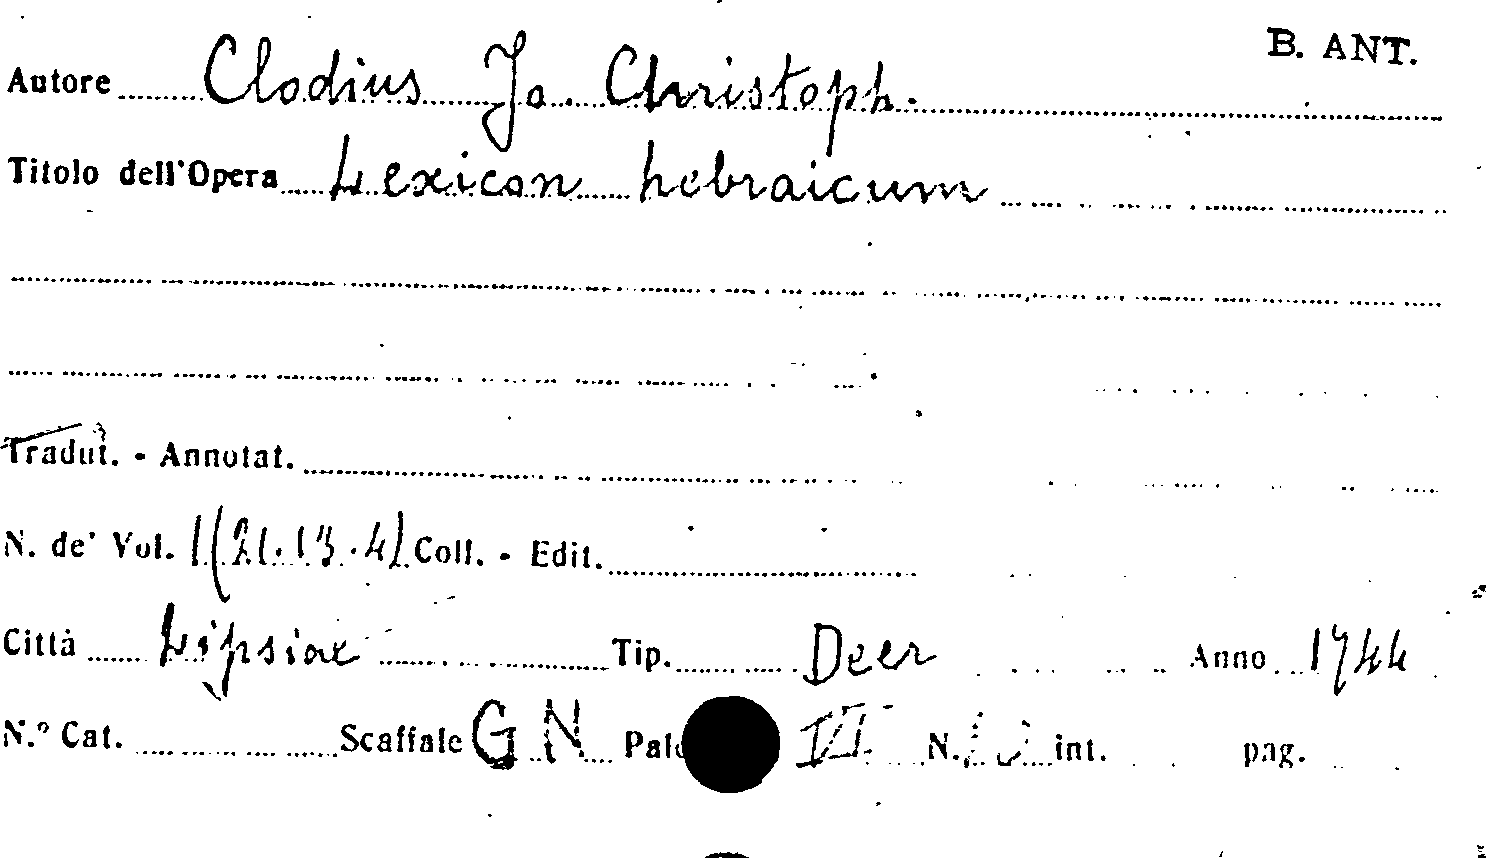 B. ANT.
Autore Clodius Jo. Christoph.
Titolo dell'Opera Lexicon hebraicum
Tradut. - Annotat.
N. de' Vol. 1 (21.13.4) Coll. - Edit.
Città Lipsiae Tip. Deer Anno 1744
N.° Cat. Scaffale GN VI N. int. pag.